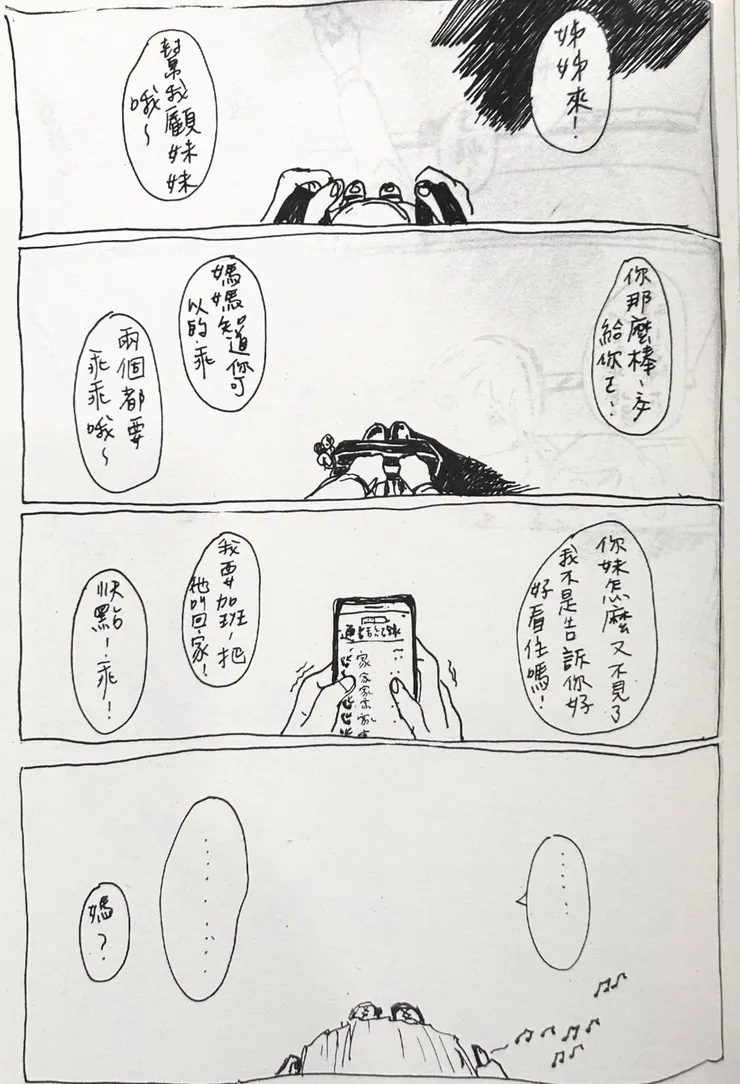 姊姊來！
幫我顧妹妹
哦～
你那麼棒、交
給你了！
媽媽知道你可
以的、乖
兩個都要
乖乖哦～
你妹怎麼又不見了
我不是告訴你好
好看住嗎！
通話記錄
家
家
家
家
我要加班、把
他叫回家！
快點！乖！
……
……
媽？